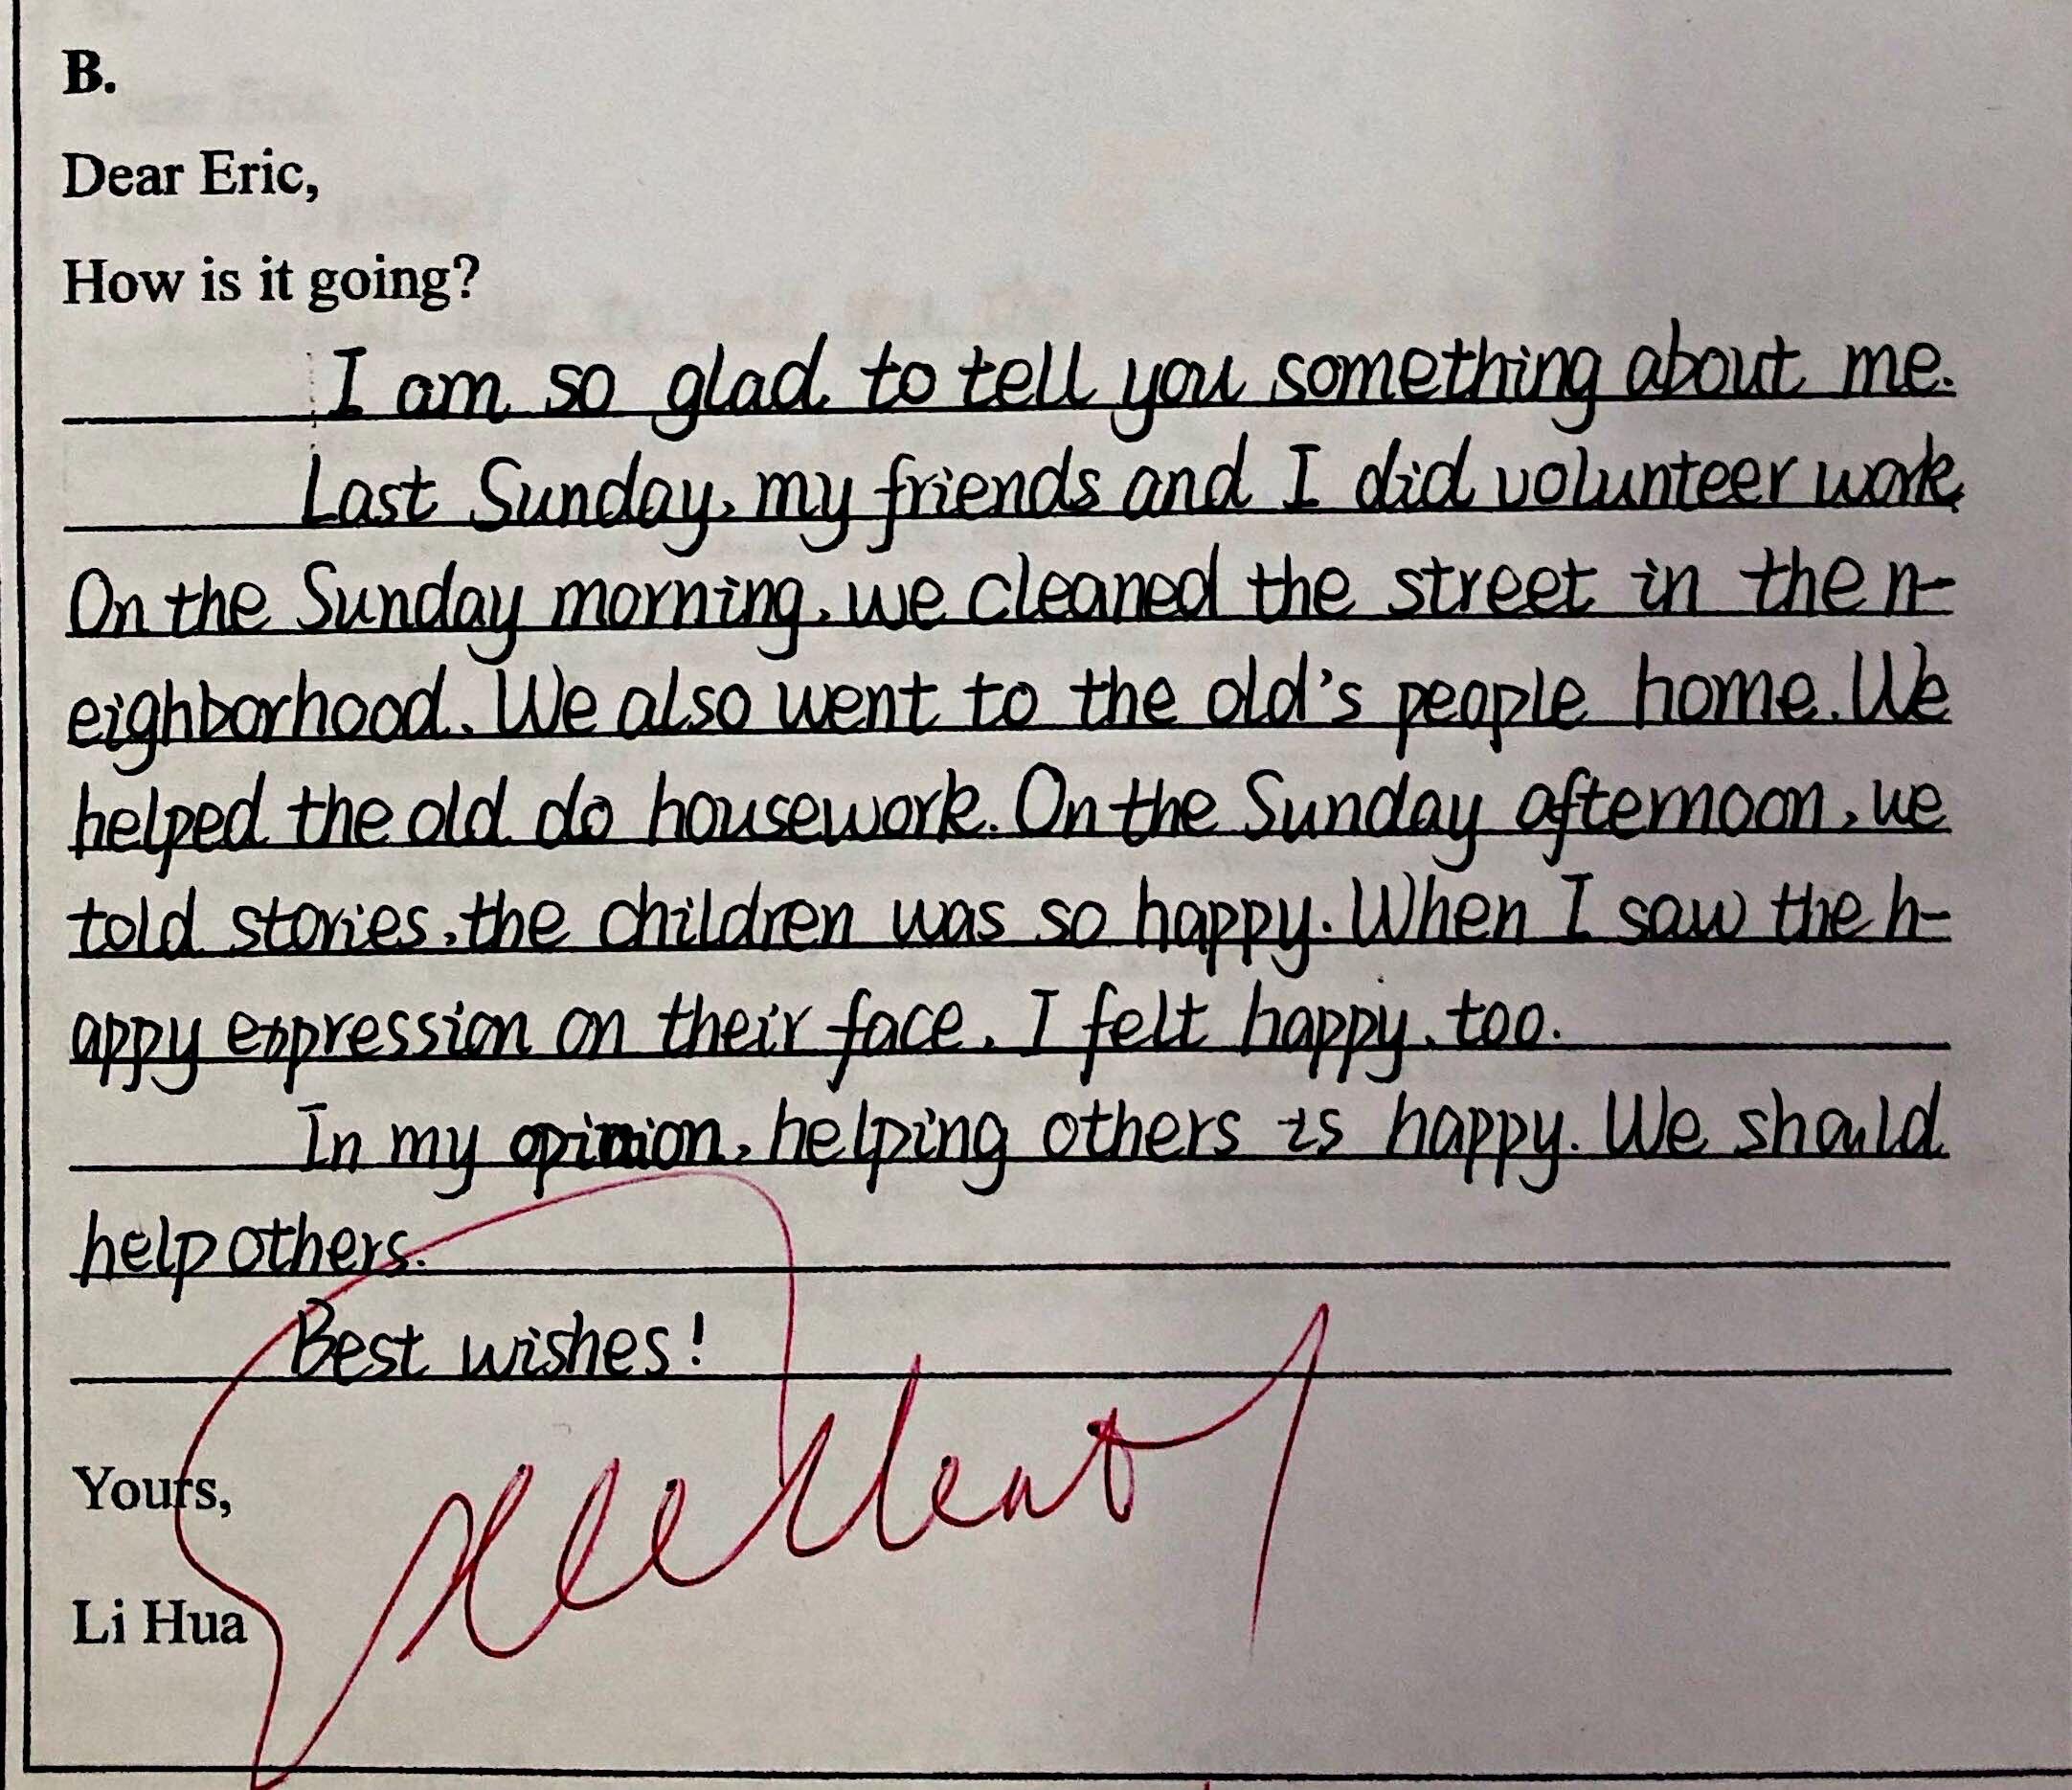 B.
Dear Eric,
How is it going?
I am so glad to tell you something about me.
Last Sunday, my friends and I did volunteer work.
On the Sunday morning, we cleaned the street in the n-
eighborhood. We also went to the old's people home. We
helped the old do housework. On the Sunday afternoon, we
told stories, the children was so happy. When I saw the h-
appy expression on their face, I felt happy, too.
In my opinion, helping others is happy. We should
help others.
Best wishes!
Yours,
Li Hua
Excellent